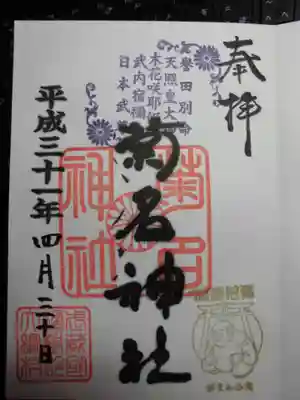 奉拝
誉田別命
天照皇大
木花咲耶
武内宿禰
日本武
菊名神社
菊名
神社
平成三十一年四月三十日